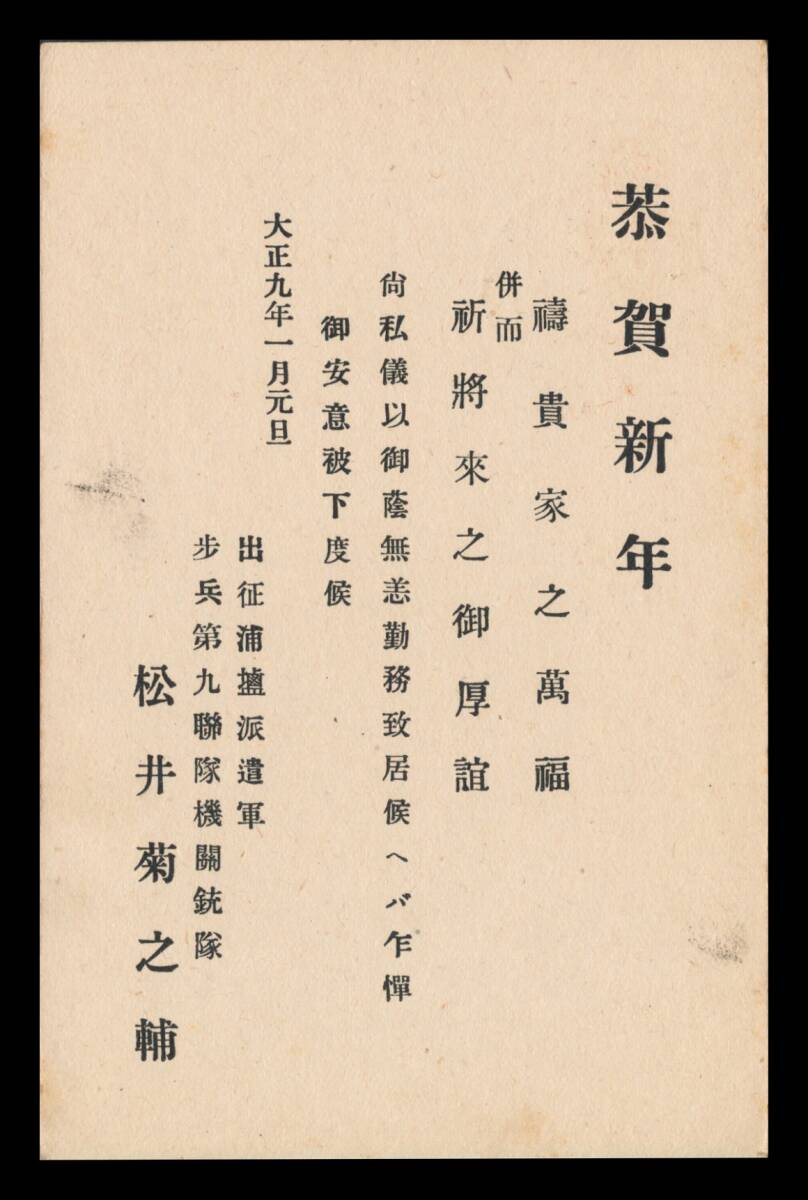 恭賀新年
禱貴家之萬福
併而
祈將來之御厚誼
尙私儀以御蔭無恙勤務致居候ヘバ乍憚
御安意被下度候
大正九年一月元旦
出征浦鹽派遣軍
步兵第九聯隊機關銃隊
松井菊之輔